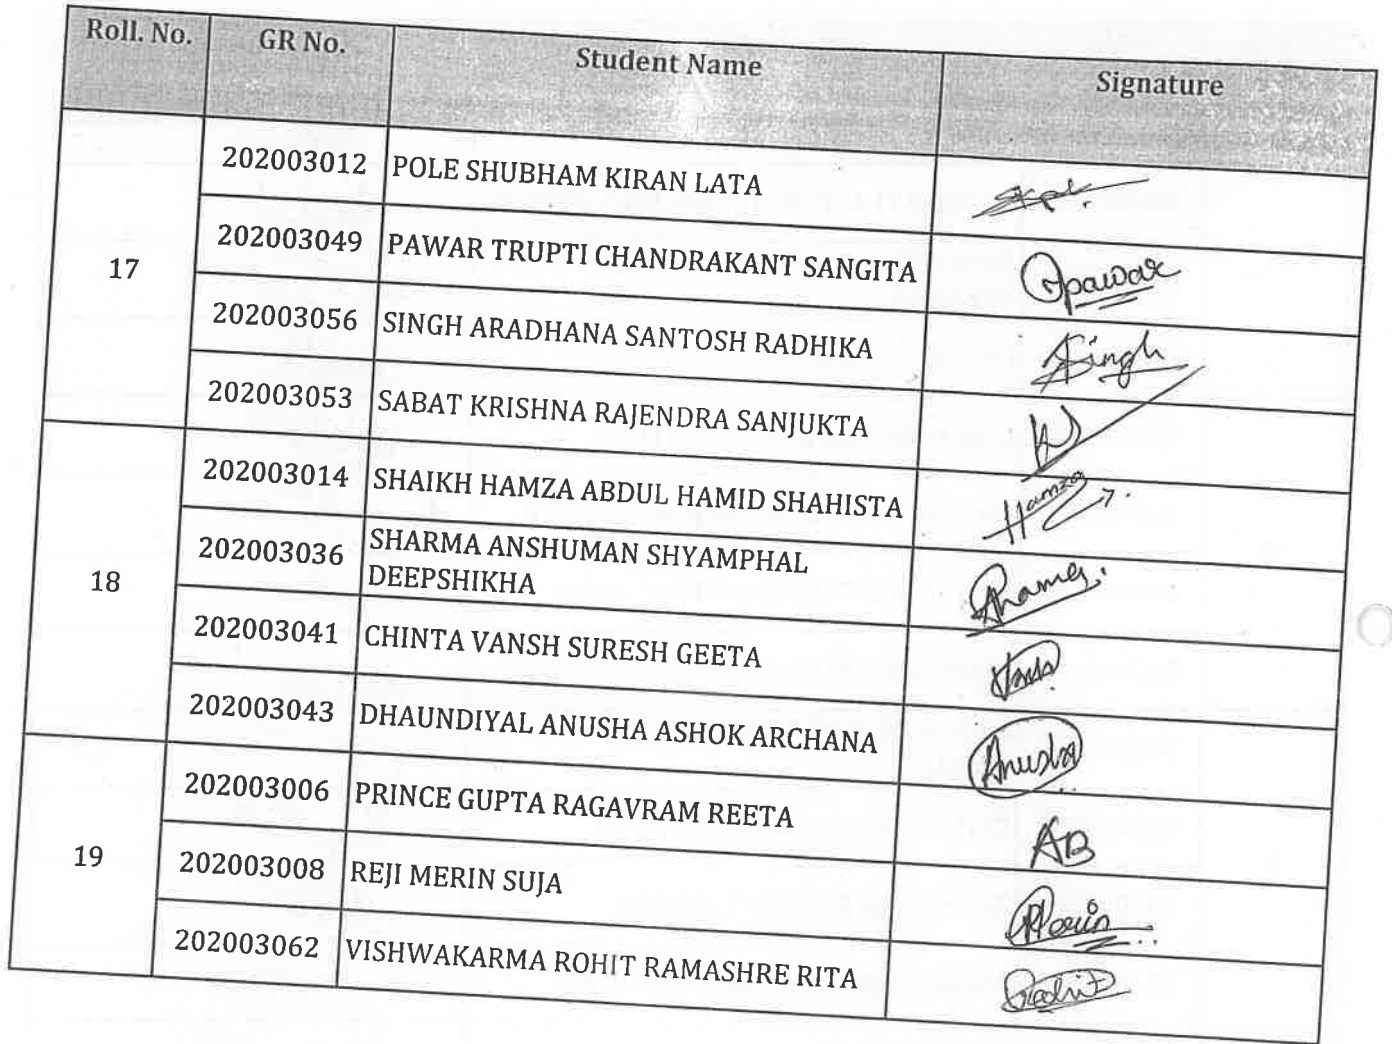 Roll. No. GR No. Student Name Signature
17
202003012 POLE SHUBHAM KIRAN LATA
202003049 PAWAR TRUPTI CHANDRAKANT SANGITA Tpawar
202003056 SINGH ARADHANA SANTOSH RADHIKA ASingh
202003053 SABAT KRISHNA RAJENDRA SANJUKTA
18
202003014 SHAIKH HAMZA ABDUL HAMID SHAHISTA Hamza
202003036 SHARMA ANSHUMAN SHYAMPHAL
DEEPSHIKHA
202003041 CHINTA VANSH SURESH GEETA
202003043 DHAUNDIYAL ANUSHA ASHOK ARCHANA Anusha
19
202003006 PRINCE GUPTA RAGAVRAM REETA AB
202003008 REJI MERIN SUJA Merin
202003062 VISHWAKARMA ROHIT RAMASHRE RITA Rohit